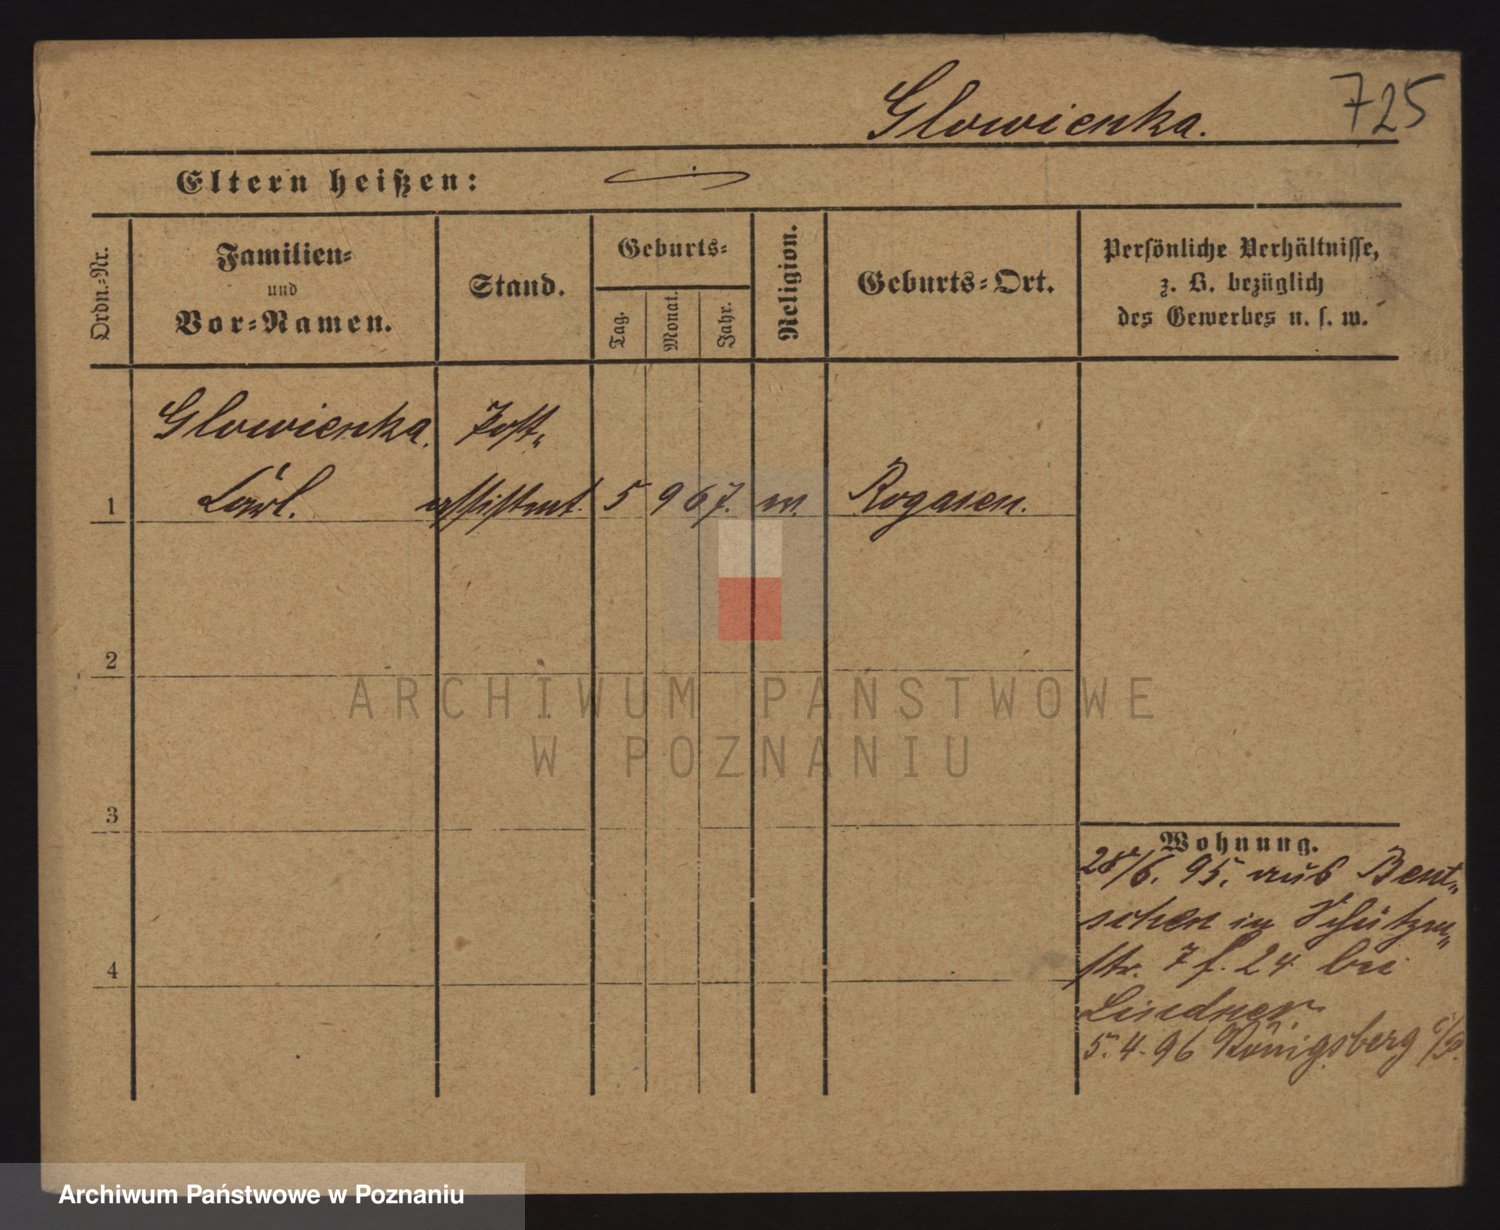 Glowienka.
725
Eltern heißen:
Ordn.-Nr.
Familien-
und
Vor-Namen.
Stand.
Geburts-
Tag.
Monat.
Jahr.
Religion.
Geburts-Ort.
Persönliche Verhältnisse,
z. B. bezüglich
des Gewerbes u. s. w.
Glowienka. Post-
1 Carl. assistent. 5 9 67. Rogasen.
2
3
4
Wohnung.
28/6. 95. aus Bent-
schen in Schützen-
str. 7 24 bei
Lindner
5.4.96 Königsberg
ARCHIWUM PAŃSTWOWE
W POZNANIU
Archiwum Państwowe w Poznaniu